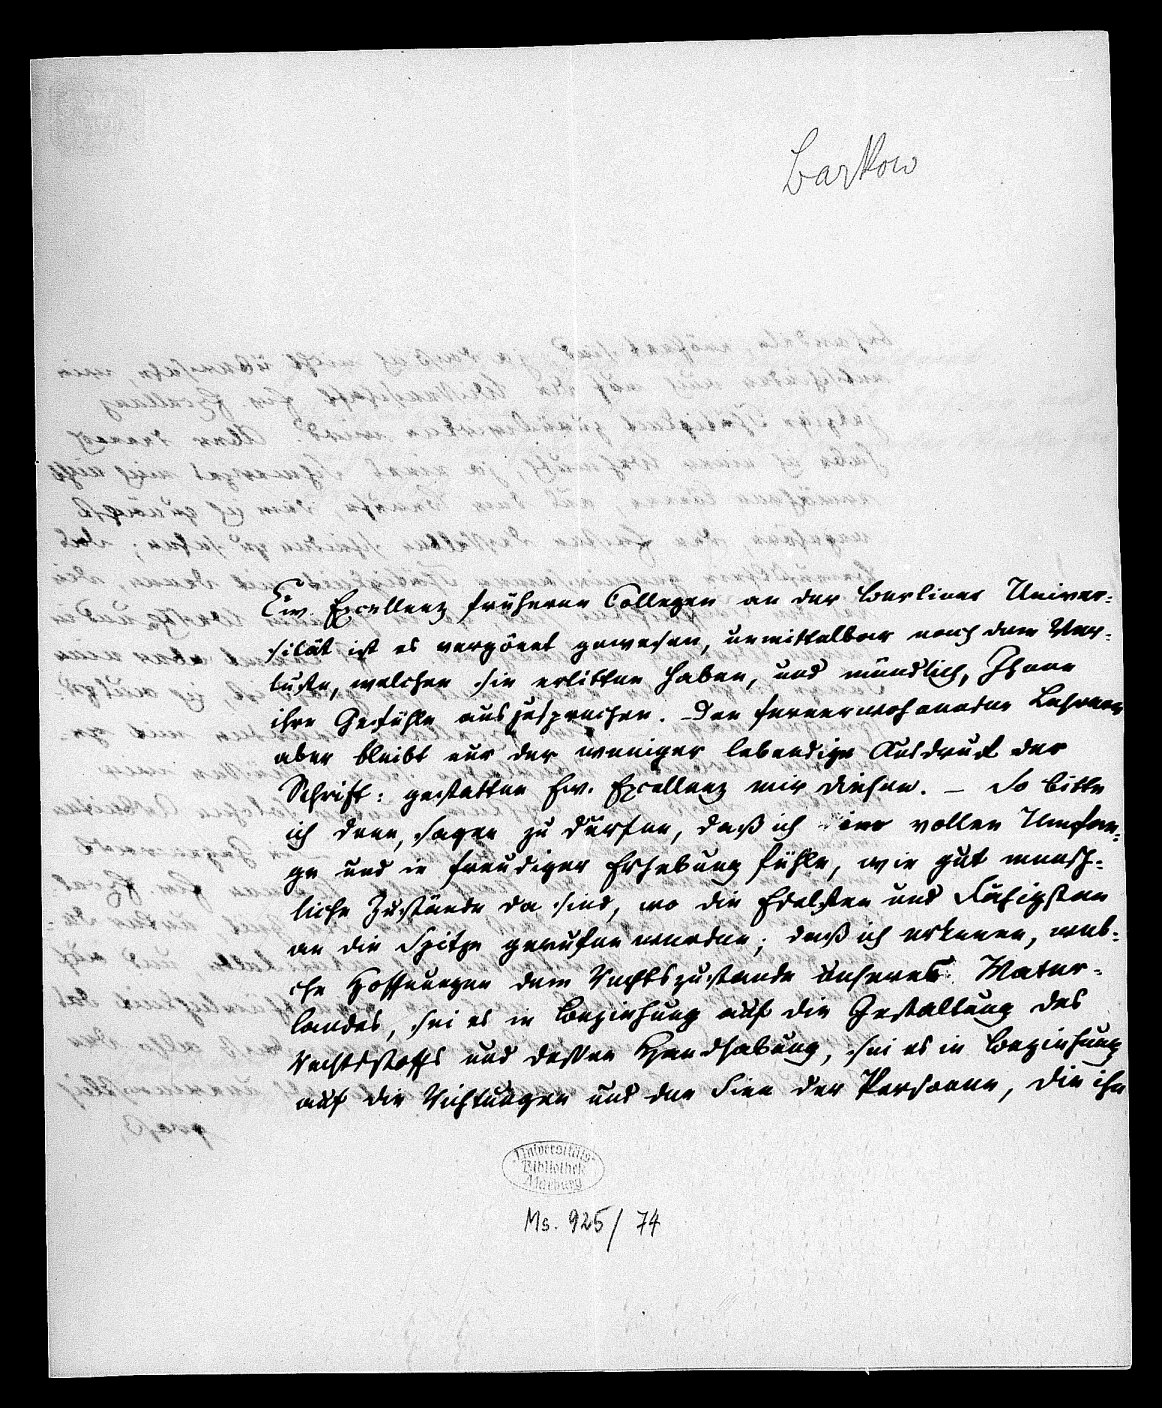 Barkow
Ew. Excellenz früheren Collegen an der Berliner Univer-
sität ist es vergönnt gewesen, unmittelbar nach dem Ver-
luste, welchen sie erlitten haben, und mündlich, Ihnen
ihre Gefühle auszusprechen. Den fernerwohnenden Lehrern
aber bleibt nur der weniger lebendige Ausdruck der
Schrift: gestatten Ew. Excellenz mir diesen. – So bitte
ich denn, sagen zu dürfen, daß ich vollen Umfan-
ge und in freudiger Erhebung fühle, wie gut mensch-
liche Zustände da sind, wo die Edelsten und Fähigsten
an die Spitze gerufen werden; daß ich erkenne, wel-
che Hoffnungen dem Rechtszustande unseres Vater-
landes, sei es in Beziehung auf die Gestaltung des
Rechtsstoffs und dessen Handhabung, sei es in Beziehung
auf die Richtungen und den Sinn der Personen, die ihn
Universitäts-
Bibliothek
Marburg
Ms. 925/74